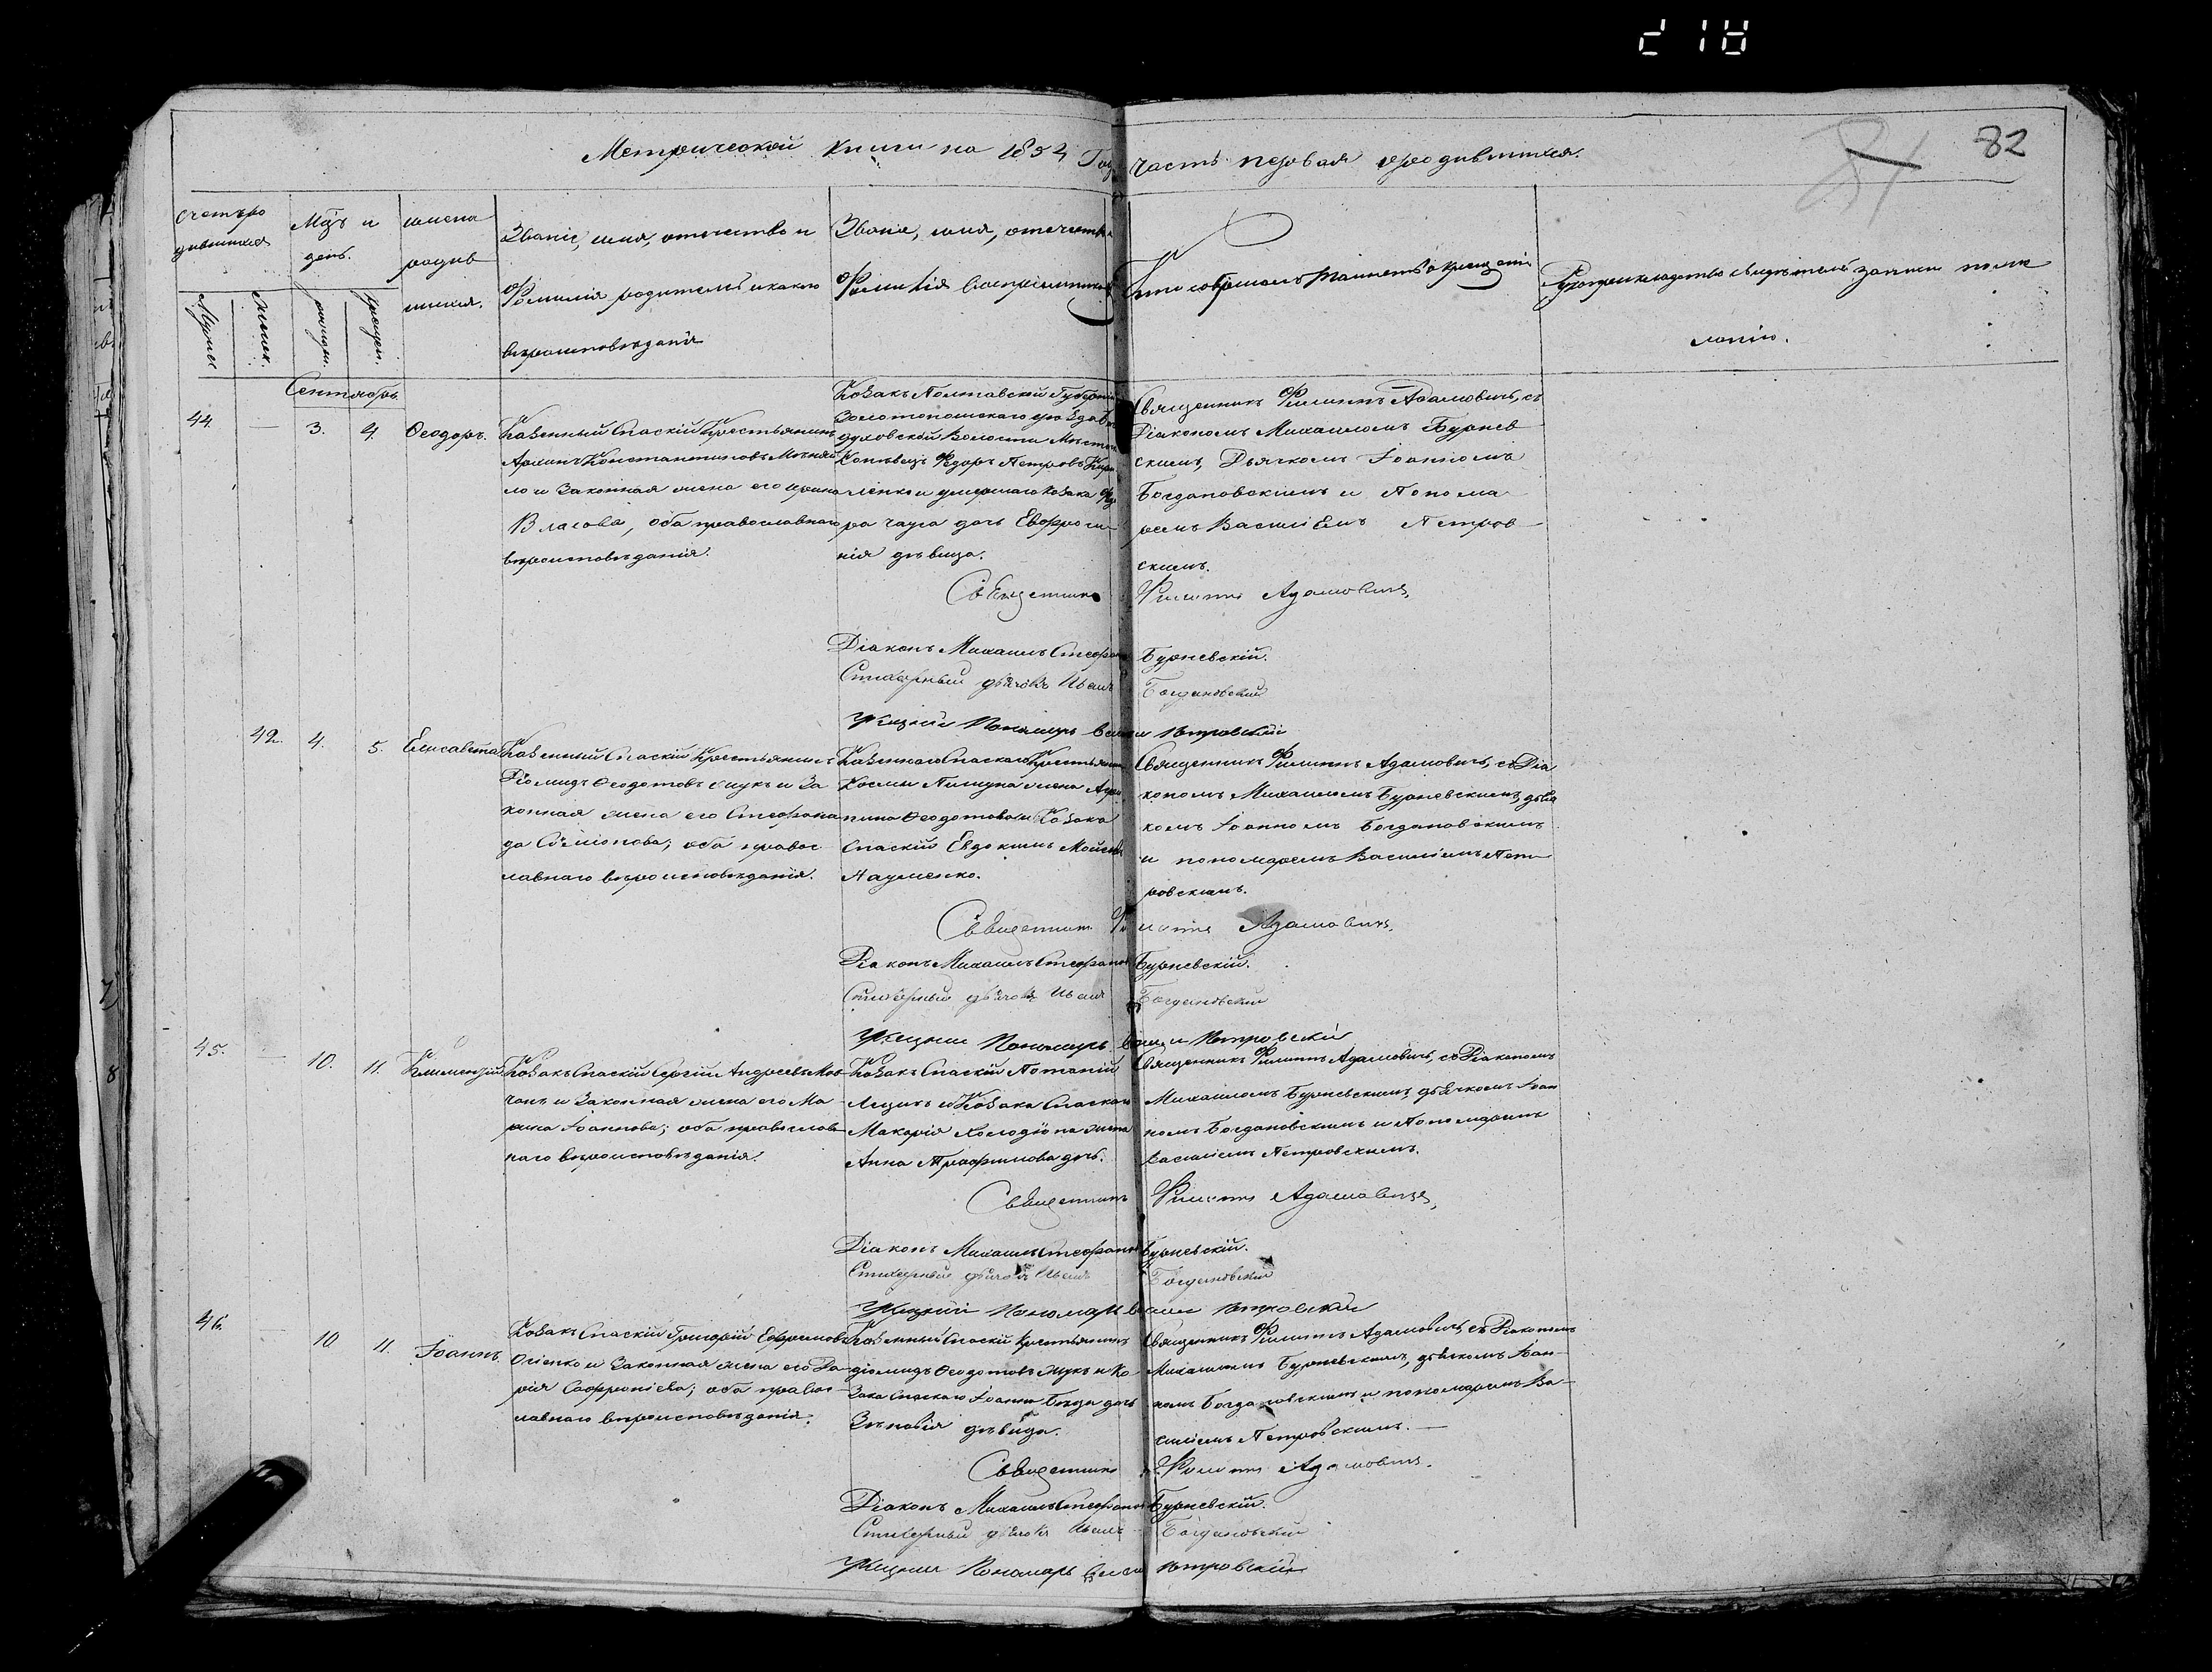 218
82
Метрической книги на 1854 Годъ часть первая о родившихся.
Счетъ ро
дившихся
Мцъ и
день.
имена
родив
шихся.
Званіе, имя, отчество и
Фамилія родителей и какого
вѣроисповѣданія
Званіе, имя, отчество
Фамилія воспріемниковъ
Кто совершалъ таинство крещенія
Рукоприкладство свидѣтелей записи по же
ланію.
Мужск
Женск.
рожден.
крещен.
Сентябрь
44.
—
3.
4.
Ѳеодоръ.
Казенный Спаскій Крестьянинъ
Константиновъ
ло и Законная жена его Ирина
Власова, оба православнаго
вѣроисповѣданія.
Козакъ Полтавской Губерніи
Золотоношскаго уѣзда
Волости
Федоръ Петровъ
ленко и умершаго Козака Федо
ра дочь Евфроси
нія дѣвица.
Священникъ Филиппъ Адамовичъ, съ
Діакономъ Михаиломъ Бурнев
скимъ, Дьячкомъ Іоанномъ
Богдановскимъ и Понома
ремъ Василіемъ Петров
скимъ.
Священникъ Филиппъ Адамовичъ,
Діаконъ Михаилъ Стефанов Бурневскій.
Стихарный дьячокъ Иванъ Богдановскій
Пономарь Петровскій
42.
4.
5.
Елисавета
Казенный Спаскій Крестьянинъ
Діомидъ Ѳеодотовъ Жукъ и За
конная жена его Стефани
да Сѵмеонова; оба правос
лавнаго вѣроисповѣданія.
Казеннаго Спаскаго Крестьянина
Космы жена Агри
пина Ѳеодотова и Козакъ
Спаскій Евдокимъ Моисеевъ
Науменко.
Священникъ Филиппъ Адамовичъ, съ Діа
кономъ Михаиломъ Бурневскимъ, дьяч
комъ Іоанномъ Богдановскимъ
и пономаремъ Василіемъ Пет
ровскимъ.
Священникъ Филиппъ Адамовичъ,
Діаконъ Михаилъ Стефанов Бурневскій.
Стихарный дьячокъ Иванъ Богдановскій
Пономарь Петровскій
45.
—
10.
11.
Климентій
Козакъ Спаскій Сергій Андреевъ Мов
чанъ и Законная жена его Ма
рина Іоаннова; оба православ
наго вѣроисповѣданія.
Козакъ Спаскій Потапій
и Козака Спаскаго
Макарія жена
Анна Трофимова дочь.
Священникъ Филиппъ Адамовичъ, съ Діакономъ
Михаиломъ Бурневскимъ, дьячкомъ Іоан
номъ Богдановскимъ и Пономаремъ
Василіемъ Петровскимъ.
Священникъ Филиппъ Адамовичъ,
Діаконъ Михаилъ Стефанов Бурневскій.
Стихарный дьячокъ Иванъ Богдановскій
Пономарь Петровскій
46.
10
11.
Іоаннъ.
Козакъ Спаскій Григорій Ефремовъ
Осіенко и Законная жена его Да
рія Софроніева; оба правос
лавнаго вѣроисповѣданія.
Казенный Спаскій Крестьянинъ
Діомидъ Ѳеодотовъ Жукъ и Ко
зака Спаскаго Іоанна дочь
Зѣновія дѣвица.
Священникъ Филиппъ Адамовичъ, съ Діакономъ
Михаиломъ Бурневскимъ, дьячкомъ Іоан
номъ Богдановскимъ и пономаремъ Ва
силіемъ Петровскимъ. —
Священникъ Филиппъ Адамовичъ.
Діаконъ Михаилъ Стефанов Бурневскій.
Стихарный дьячокъ Иванъ Богдановскій
Пономарь Петровскій